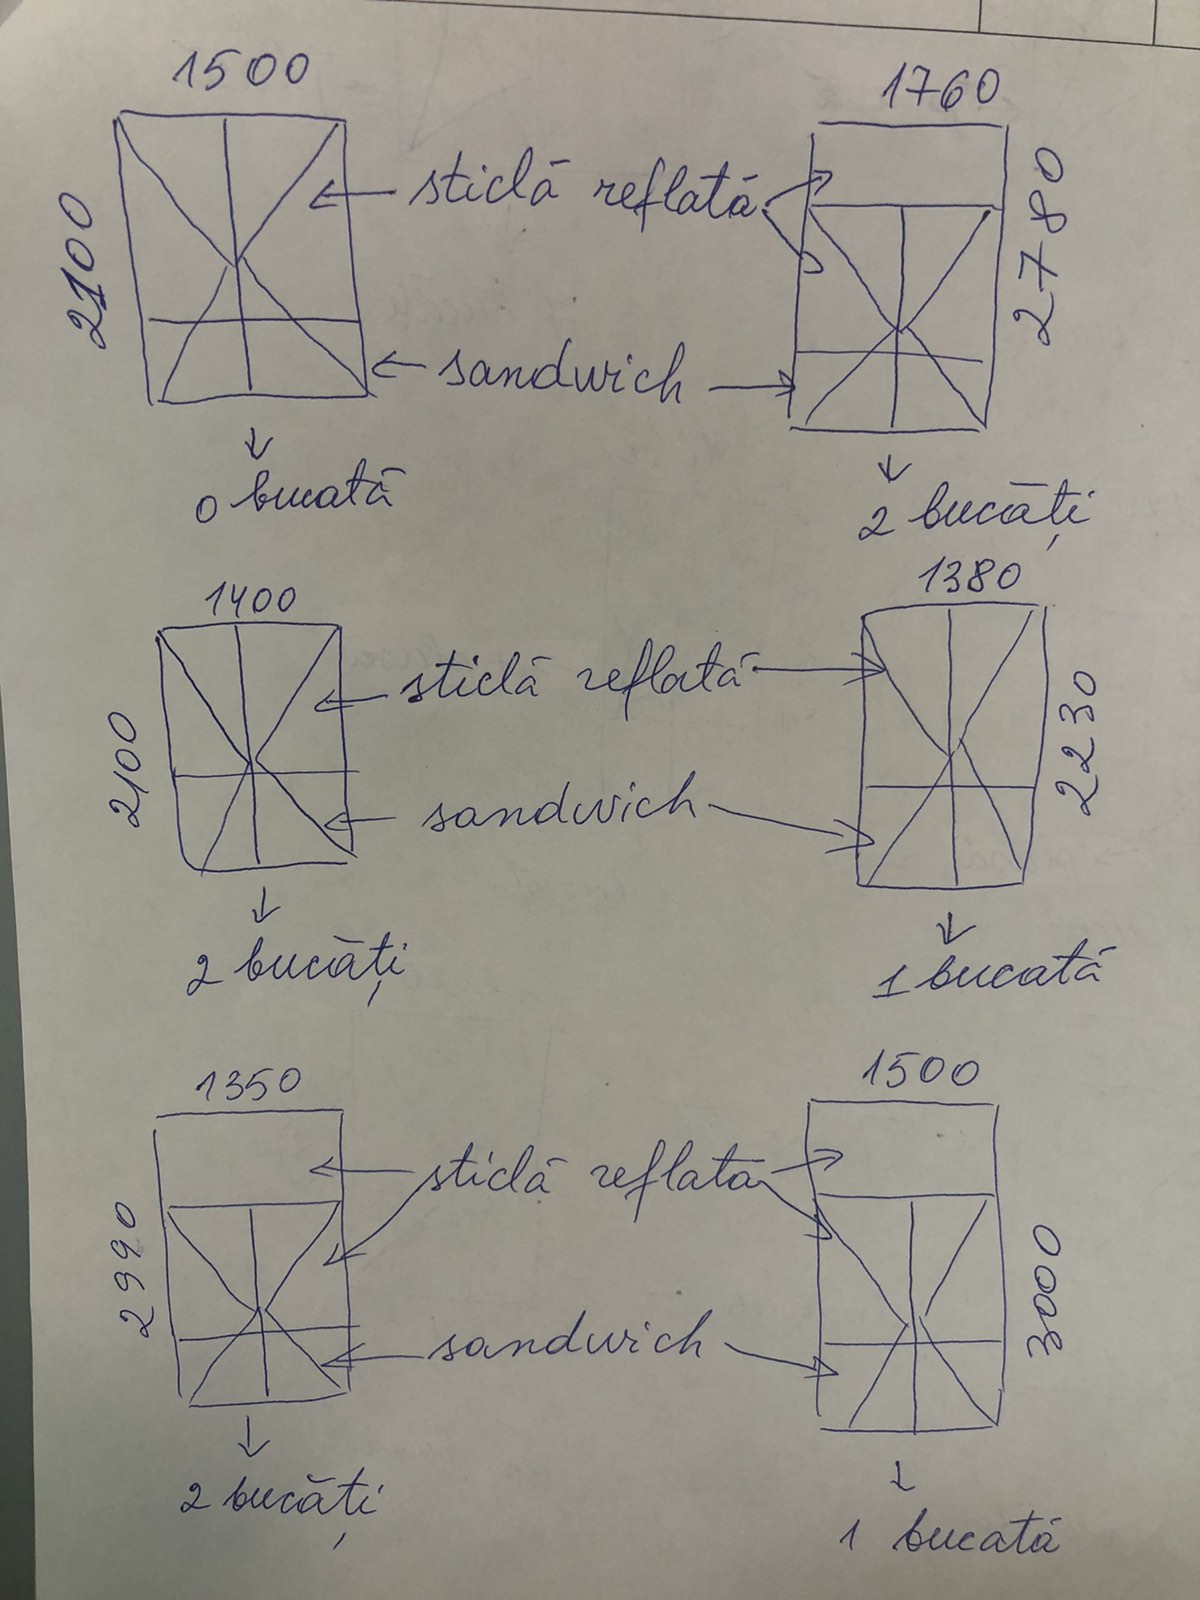 1500
1760
2100
sticlă reflată
2780
sandwich
0 bucată
2 bucăți
1400
1380
2100
sticlă reflată
2230
sandwich
2 bucăți
1 bucată
1350
1500
2990
sticlă reflata
3000
sandwich
2 bucăți
1 bucată